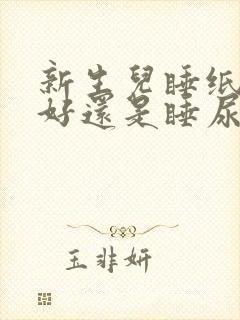 新生兒睡纸
好還是睡尿
玉非妍